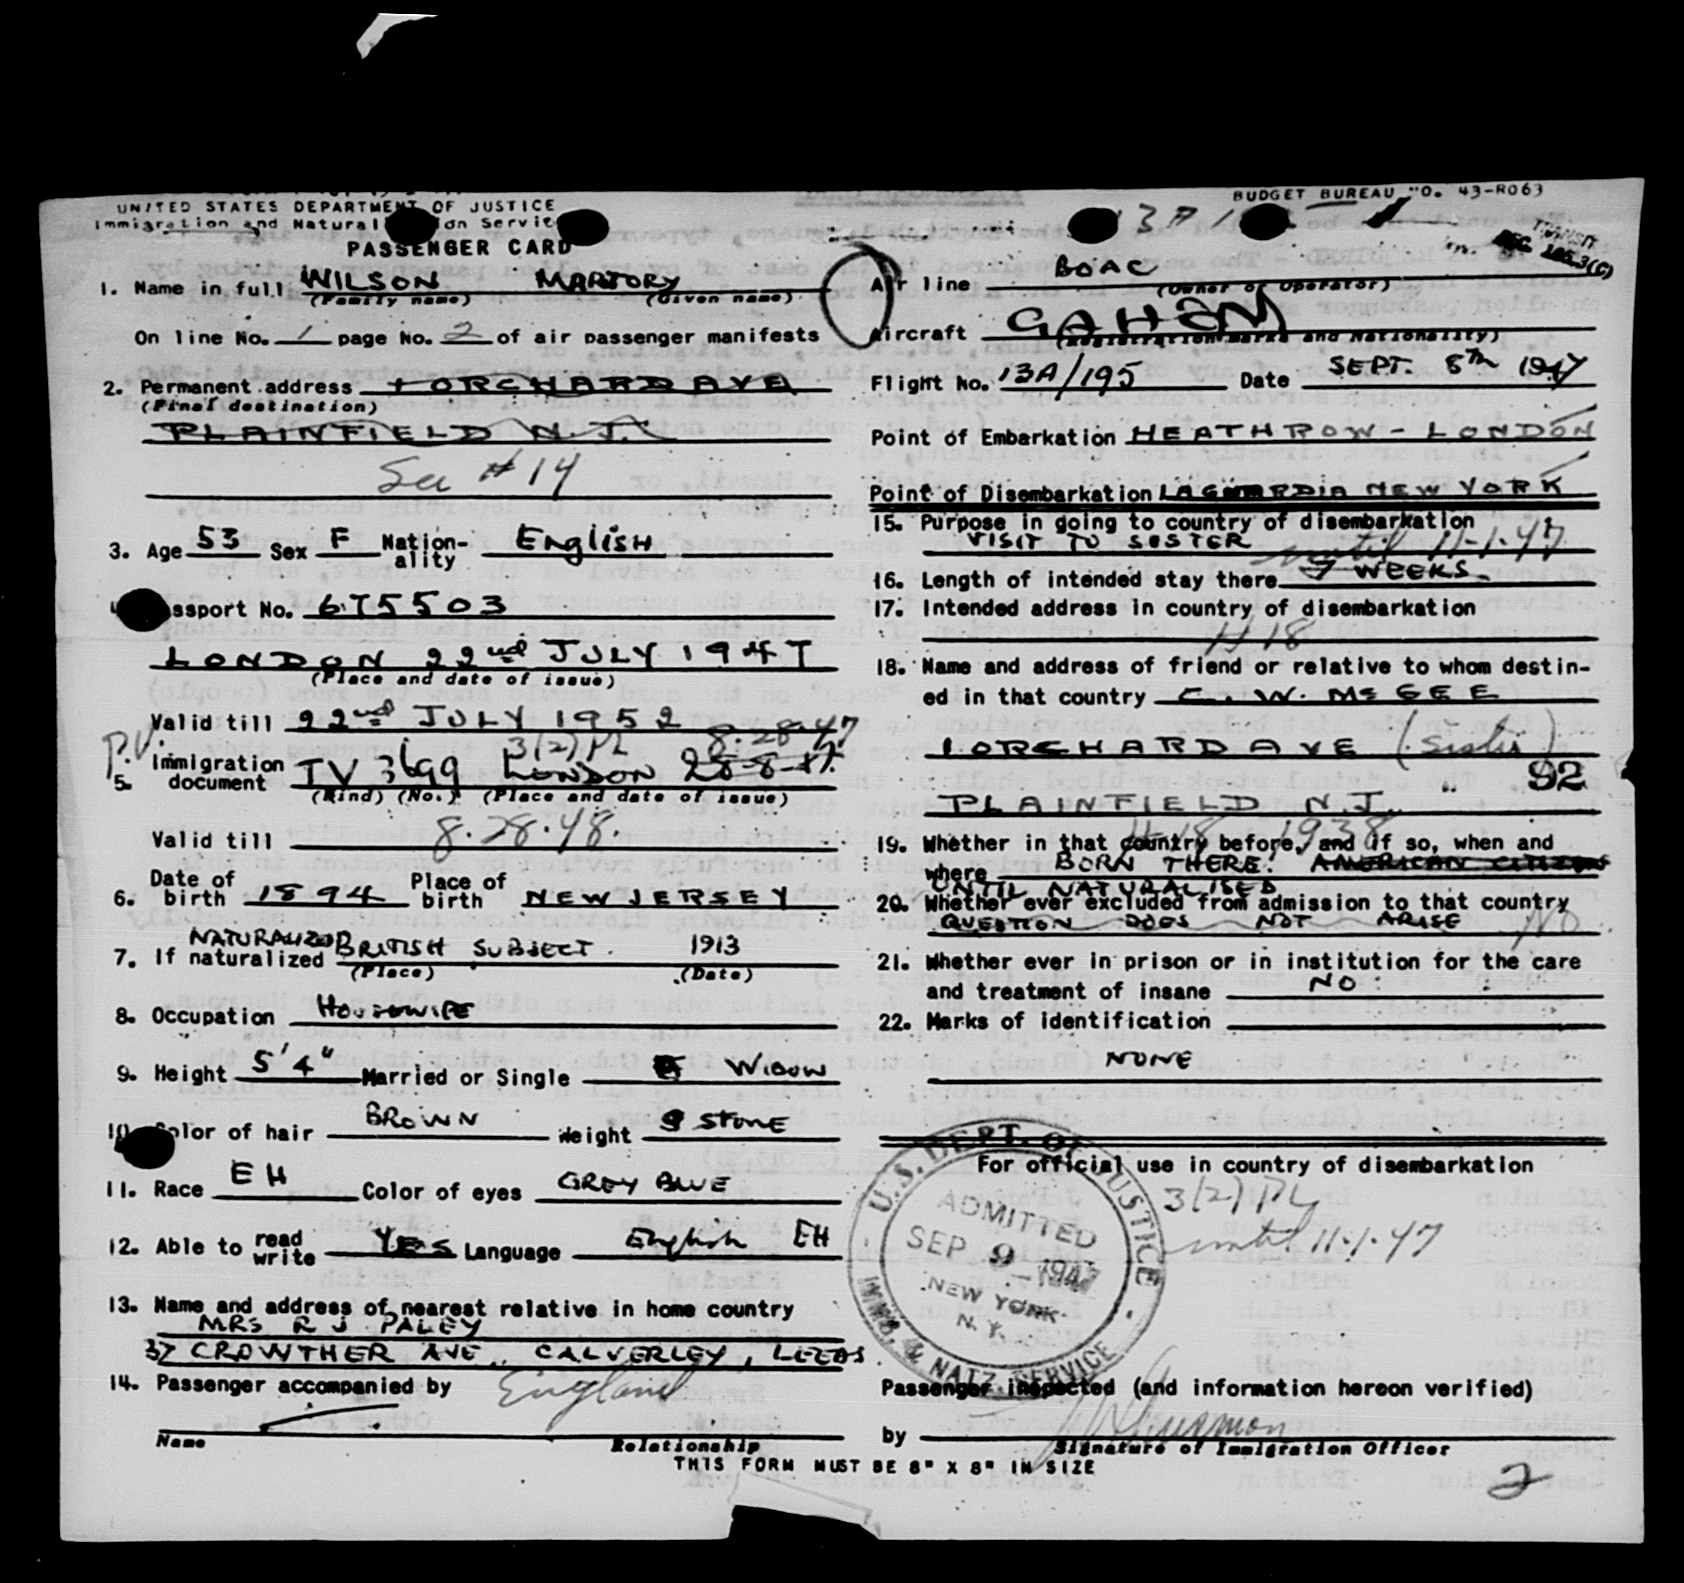 UNITED STATES DEPARTMENT OF JUSTICE
Immigration and Natural on Servic
PASSENGER CARD
BUDGET BUREAU NO. 43-R063
13A
TRANSIT
REG 186.3(c)
1. Name in full WILSON MARJORY
(Family name) (Given name)
On line No. 1 page No. 2 of air passenger manifests
2. Permanent address 1 ORCHARD AVE
(Final destination)
PLAINFIELD N.J.
See #14
3. Age 53 Sex F Nation-ality English
4. Passport No. 675503
LONDON 22nd JULY 1947
(Place and date of issue)
Valid till 22nd JULY 1952
P.V. 3(2)PL 8.28.47
5. Immigration document TV 3699 LONDON 28-8-47
(Kind) (No.) (Place and date of issue)
Valid till 8.28.48.
6. Date of birth 1894 Place of birth NEW JERSEY
7. If naturalized NATURALIZED BRITISH SUBJECT. 1913
(Place) (Date)
8. Occupation HOUSEWIFE
9. Height 5'4" Married or Single WIDOW
10. Color of hair BROWN Weight 9 STONE
11. Race EH Color of eyes GREY BLUE
12. Able to read write YES Language English EH
13. Name and address of nearest relative in home country
MRS R J PALEY
37 CROWTHER AVE, CALVERLEY, LEEDS
England
14. Passenger accompanied by
Name Relationship
THIS FORM MUST BE 8" X 8" IN SIZE
Air line BOAC
(Owner or Operator)
Aircraft GAHEM
(Registration marks and nationality)
Flight No. 13A/195 Date SEPT. 8th 1947
Point of Embarkation HEATHROW - LONDON
Point of Disembarkation LAGUARDIA NEW YORK
15. Purpose in going to country of disembarkation
VISIT TO SISTER until 11-1-47
16. Length of intended stay there 7 WEEKS.
17. Intended address in country of disembarkation
#18
18. Name and address of friend or relative to whom destin-
ed in that country C. W. McGEE
1 ORCHARD AVE (Sister)
92
PLAINFIELD N.J.
#18 1938
19. Whether in that country before, and if so, when and
where BORN THERE. AMERICAN CITIZEN
UNTIL NATURALISED
20. Whether ever excluded from admission to that country
QUESTION DOES NOT ARISE No
21. Whether ever in prison or in institution for the care
and treatment of insane NO.
22. Marks of identification
NONE
For official use in country of disembarkation
3(2)PL
until 11-1-47
U.S. DEPT. OF JUSTICE
ADMITTED
SEP 9 - 1947
NEW YORK.
N.Y.
IMMG. & NATZ. SERVICE
Passenger inspected (and information hereon verified)
by
Signature of Immigration Officer
2